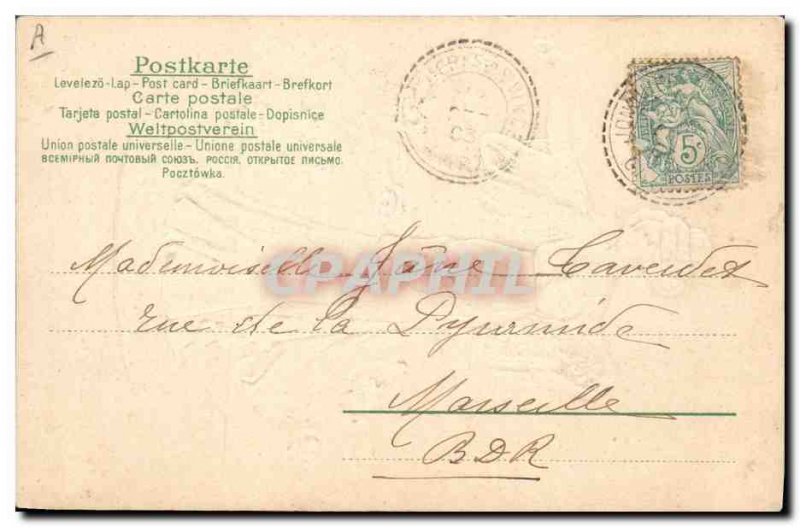 A
Postkarte
Levelező-Lap - Post card - Briefkaart - Brefkort
Carte postale
Tarjeta postal - Cartolina postale - Dopisnice
Weltpostverein
Union postale universelle - Unione postale universale
ВСЕМІРНЫЙ ПОЧТОВЫЙ СОЮЗЪ. РОССІЯ. ОТКРЫТОЕ ПИСЬМО.
Pocztówka.
5c
POSTES
CPAPHIL
Mademoiselle Jâne
rue de la Pyramide
Marseille
BDR